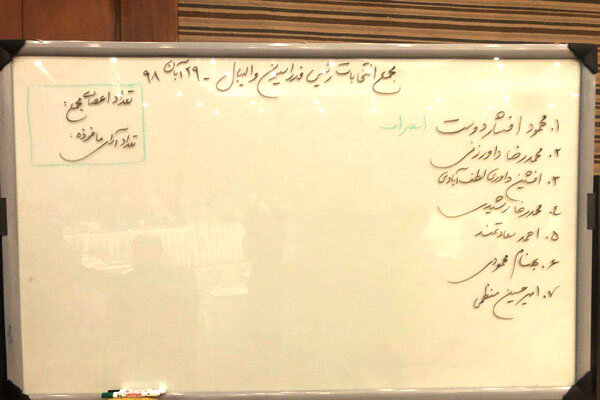 مجمع انتخابات رئیس فدراسیون والیبال - ۲۹ آبان ۹۸
تعداد اعضای مجمع :
تعداد آرای ماخوذه :
۱. محمود افشاردوست انصراف
۲. محمدرضا داورزنی
۳. افشین داوری لطف آبادی
۴. محمدرضا رشیدی
۵. احمد سعادتمند
۶. بهنام محمودی
۷. امیرحسین منظمی